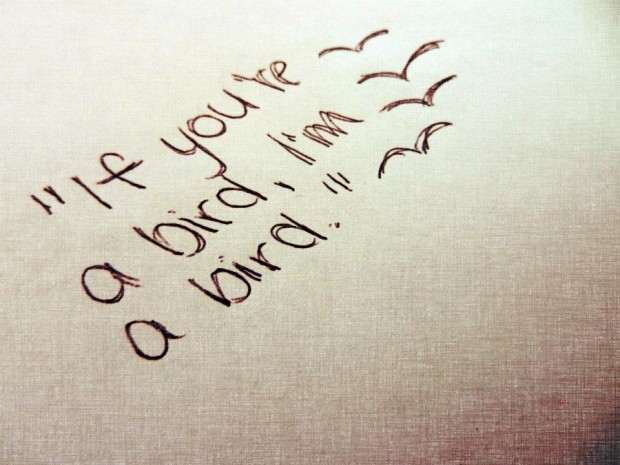 "If you're
a bird, I'm
a bird."